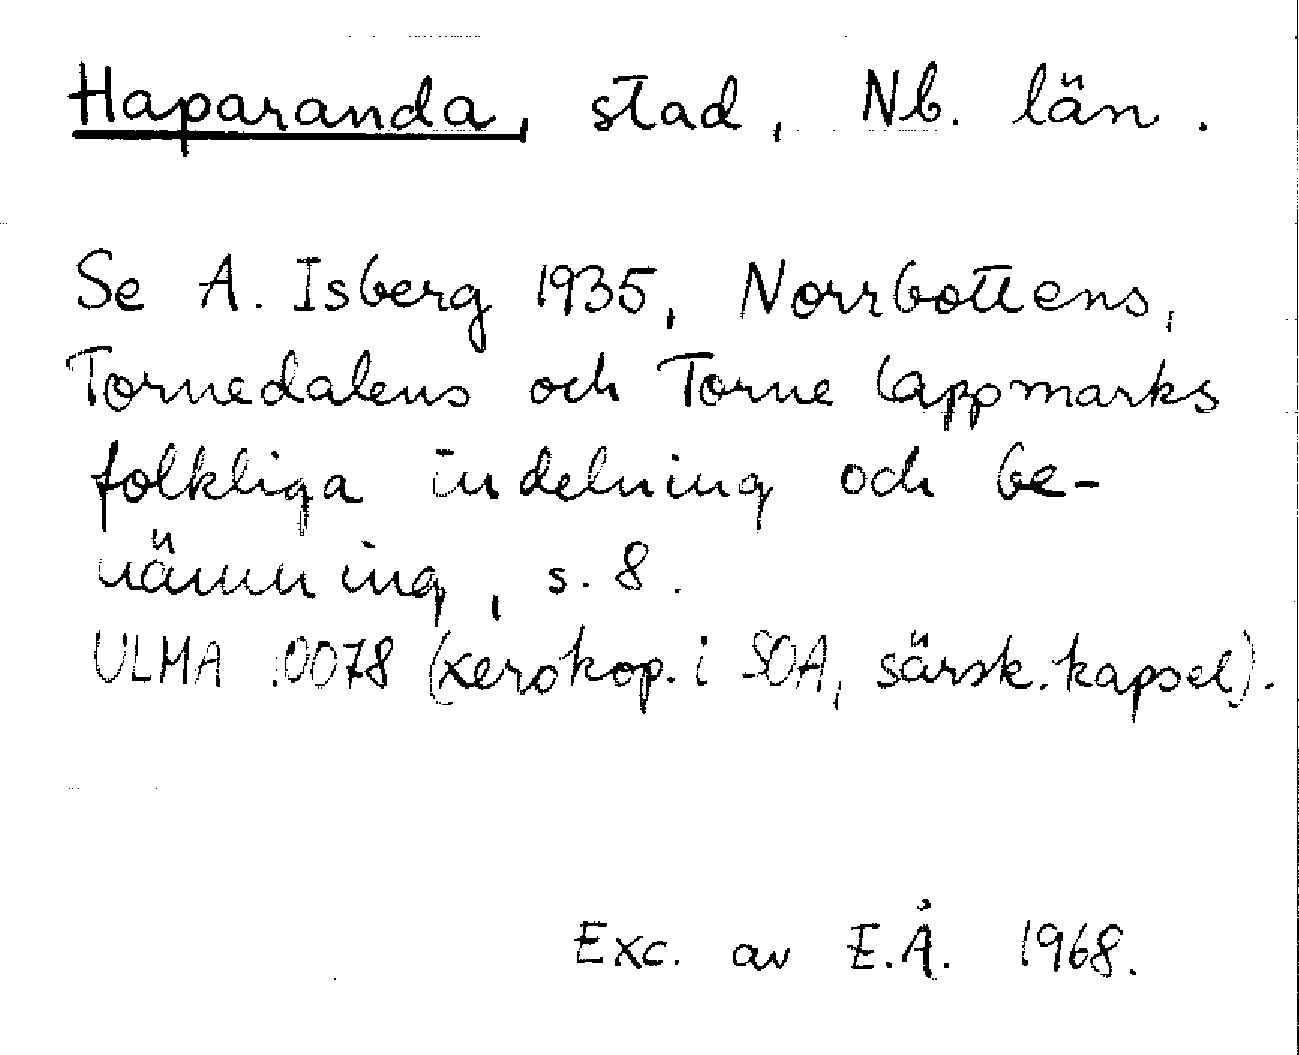 Haparanda, stad, Nb. län.
Se A. Isberg 1935, Norrbottens,
Tornedalens och Torne lappmarks
folkliga indelning och be-
nämning, s. 8.
ULMA 0078 (xerokop. i SOA, särsk. kapsel).
Exc. av E.Å. 1968.